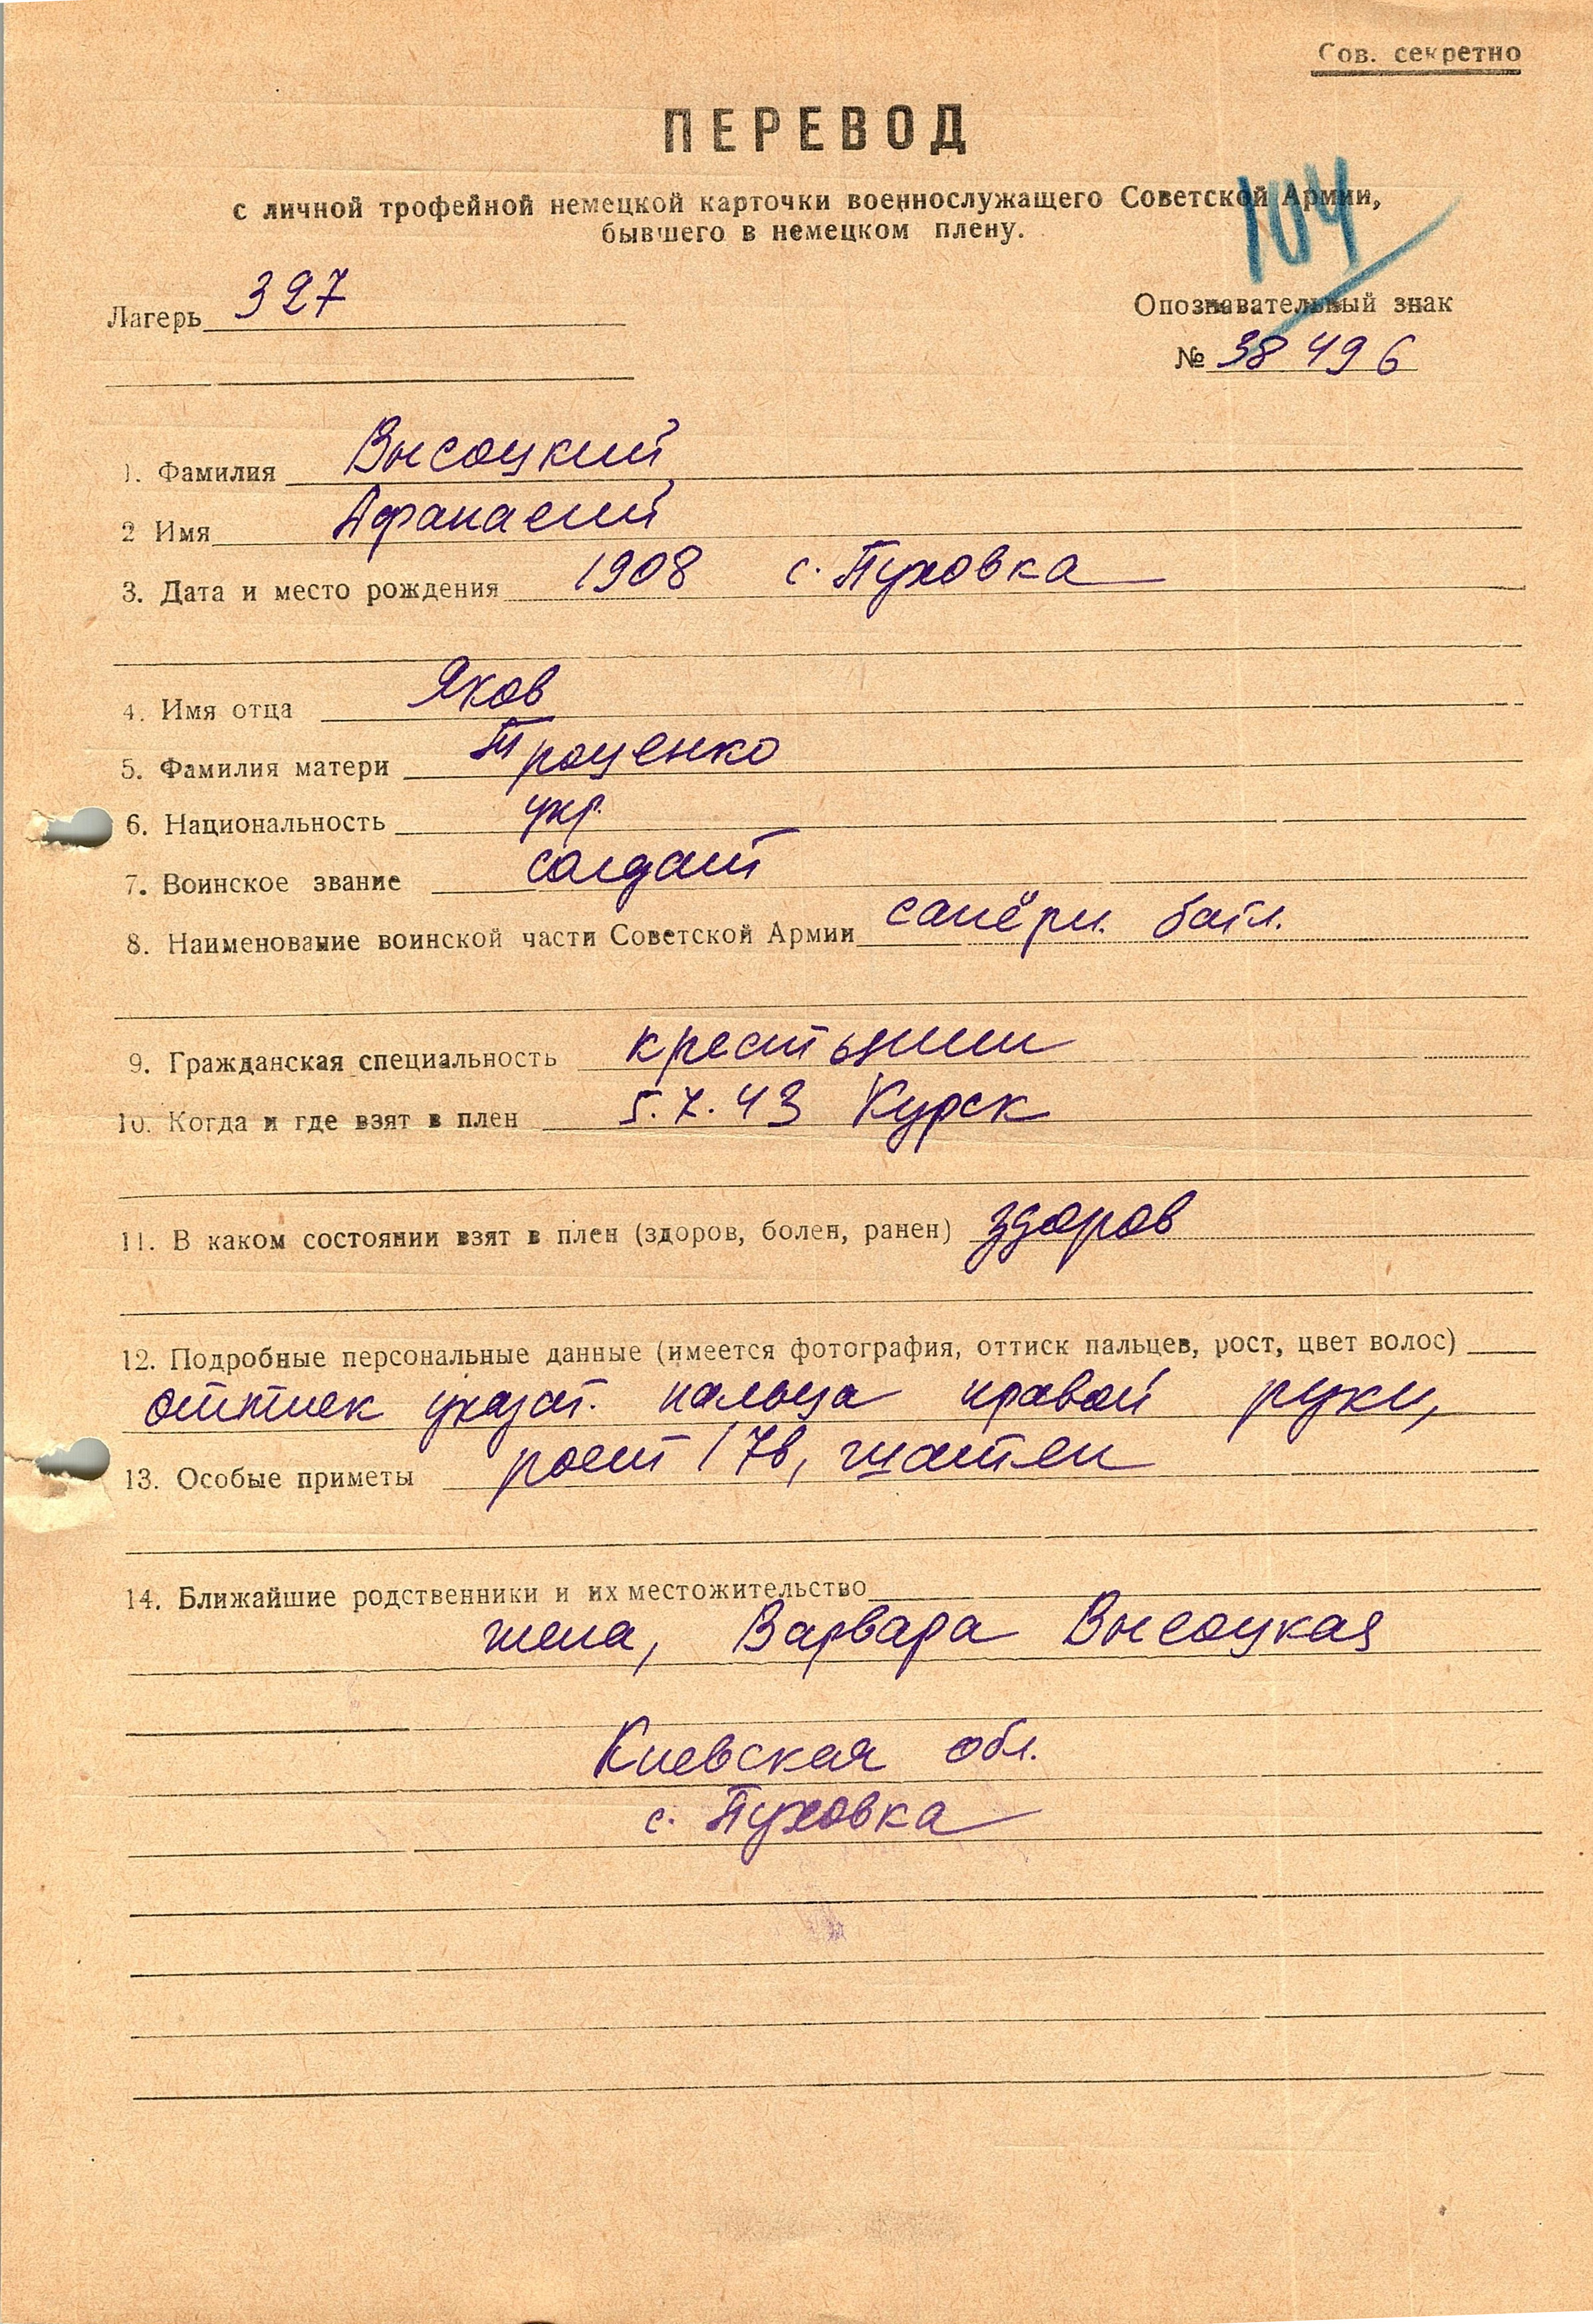 Сов. секретно
ПЕРЕВОД
с личной трофейной немецкой карточки военнослужащего Советской Армии,
бывшего в немецком плену.
104
Лагерь 327
Опознавательный знак
№ 38496
1. Фамилия Высоцкий
2 Имя Афанасий
3. Дата и место рождения 1908 с. Пуховка
4. Имя отца Яков
5. Фамилия матери Троценко
6. Национальность укр.
7. Воинское звание солдат
8. Наименование воинской части Советской Армии сапёрн. батл.
9. Гражданская специальность крестьянин
10. Когда и где взят в плен 5.7.43 Курск
11. В каком состоянии взят в плен (здоров, болен, ранен) здоров
12. Подробные персональные данные (имеется фотография, оттиск пальцев, рост, цвет волос)
оттиск указат. пальца правой руки,
13. Особые приметы рост 176, шатен
14. Ближайшие родственники и их местожительство
жена, Варвара Высоцкая
Киевская обл.
с. Пуховка